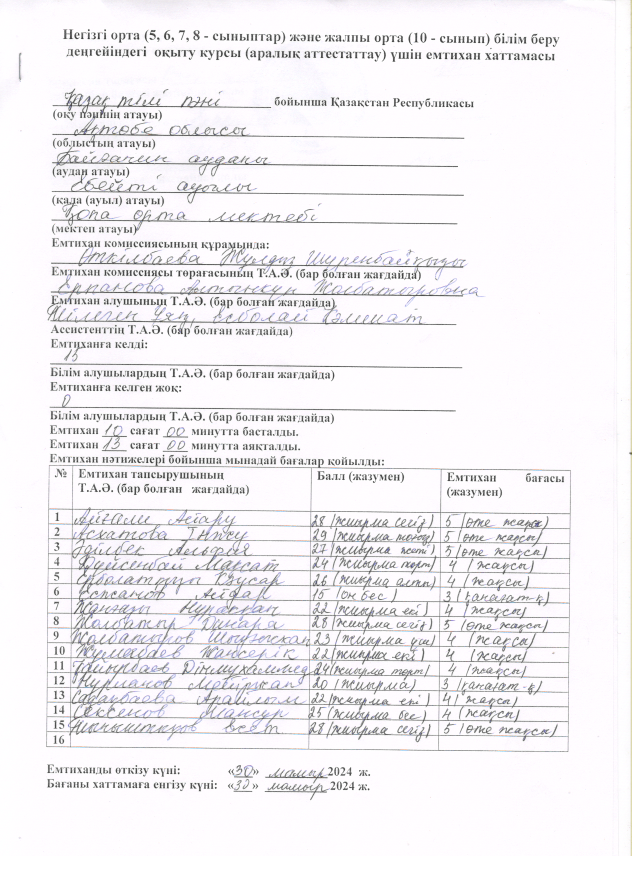 Негізгі орта (5, 6, 7, 8 - сыныптар) және жалпы орта (10 - сынып) білім беру
деңгейіндегі оқыту курсы (аралық аттестаттау) үшін емтихан хаттамасы
Қазақ тілі пәні бойынша Қазақстан Республикасы
(оқу пәнінің атауы)
Ақтөбе облысы
(облыстың атауы)
Байғанин ауданы
(аудан атауы)
ауылы
(қала (ауыл) атауы)
Қопа орта мектебі
(мектеп атауы)
Емтихан комиссиясының құрамында:
Өткілбаева Жұлдыз Шуренбайқызы
Емтихан комиссиясы төрағасының Т.А.Ә. (бар болған жағдайда)
Ерпанова Алтынкүн Жолбатыровна
Емтихан алушының Т.А.Ә. (бар болған жағдайда)
Ассистенттің Т.А.Ә. (бар болған жағдайда)
Емтиханға келді:
15
Білім алушылардың Т.А.Ә. (бар болған жағдайда)
Емтиханға келген жоқ:
0
Білім алушылардың Т.А.Ә. (бар болған жағдайда)
Емтихан 10 сағат 00 минутта басталды.
Емтихан 13 сағат 00 минутта аяқталды.
Емтихан нәтижелері бойынша мынадай бағалар қойылды:
№ Емтихан тапсырушының Т.А.Ә. (бар болған жағдайда) Балл (жазумен) Емтихан бағасы (жазумен)
1 Айтөали Айару 28 (жиырма сегіз) 5 (өте жақсы)
2 Асхатова Інжу 29 (жиырма тоғыз) 5 (өте жақсы)
3 Әділбек 27 (жиырма жеті) 5 (өте жақсы)
4 Дүйсенбай Мақсат 24 (жиырма төрт) 4 (жақсы)
5 Ерболатқызы Каусар 26 (жиырма алты) 4 (жақсы)
6 Еспсанов Айдар 15 (он бес) 3 (қанағат-қ)
7 Нұрасқан 22 (жиырма екі) 4 (жақсы)
8 Жолбатыр Динара 28 (жиырма сегіз) 5 (өте жақсы)
9 Жолбатыров Шыңғысхан 23 (жиырма үш) 4 (жақсы)
10 Жұмабаев Жансерік 22 (жиырма екі) 4 (жақсы)
11 Тайырбаев Дінмухаммед 24 (жиырма төрт) 4 (жақсы)
12 Нурманов Мейіржан 20 (жиырма) 3 (қанағат-қ)
13 Садақбаева Арайлым 22 (жиырма екі) 4 (жақсы)
14 Сексенов Мансур 25 (жиырма бес) 4 (жақсы)
15 28 (жиырма сегіз) 5 (өте жақсы)
16
Емтиханды өткізу күні: «30» мамыр 2024 ж.
Бағаны хаттамаға енгізу күні: «30» мамыр 2024 ж.